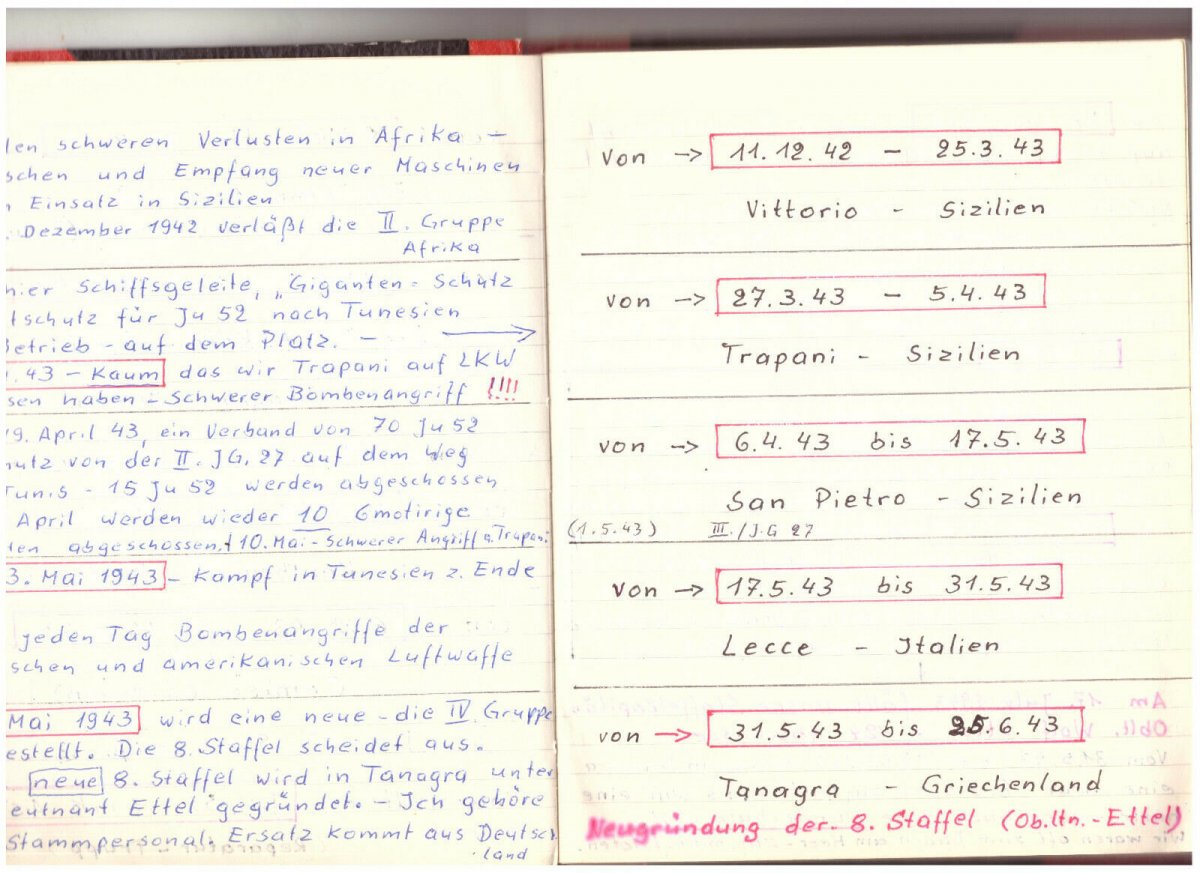 schweren Verlusten in Afrika –
schen und Empfang neuer Maschinen
Einsatz in Sizilien
. Dezember 1942 verläßt die II. Gruppe
Afrika
hier Schiffsgeleite, „Giganten - Schutz
tschutz für Ju 52 nach Tunesien
Betrieb - auf dem Platz. –
.43 – Kaum das wir Trapani auf LKW
sen haben – Schwerer Bombenangriff !!!!
9. April 43, ein Verband von 70 Ju 52
hutz von der II. JG. 27 auf dem Weg
Tunis - 15 Ju 52 werden abgeschossen
April werden wieder 10 6motirige
ten abgeschossen, 10. Mai - Schwerer Angriff a. Trapani
3. Mai 1943 – Kampf in Tunesien z. Ende
jeden Tag Bombenangriffe der
schen und amerikanischen Luftwaffe
Mai 1943 wird eine neue - die IV. Gruppe
estellt. Die 8. Staffel scheidet aus.
neue 8. Staffel wird in Tanagra unter
eutnant Ettel gegründet. – Ich gehöre
Stammpersonal. Ersatz kommt aus Deutsch
land
von → 11.12.42 – 25.3.43
Vittorio - Sizilien
von → 27.3.43 – 5.4.43
Trapani - Sizilien
von → 6.4.43 bis 17.5.43
San Pietro - Sizilien
(1.5.43) III./J.G 27
von → 17.5.43 bis 31.5.43
Lecce - Italien
von → 31.5.43 bis 25.6.43
Tanagra - Griechenland
Neugründung der 8. Staffel (Ob.ltn.-Ettel)